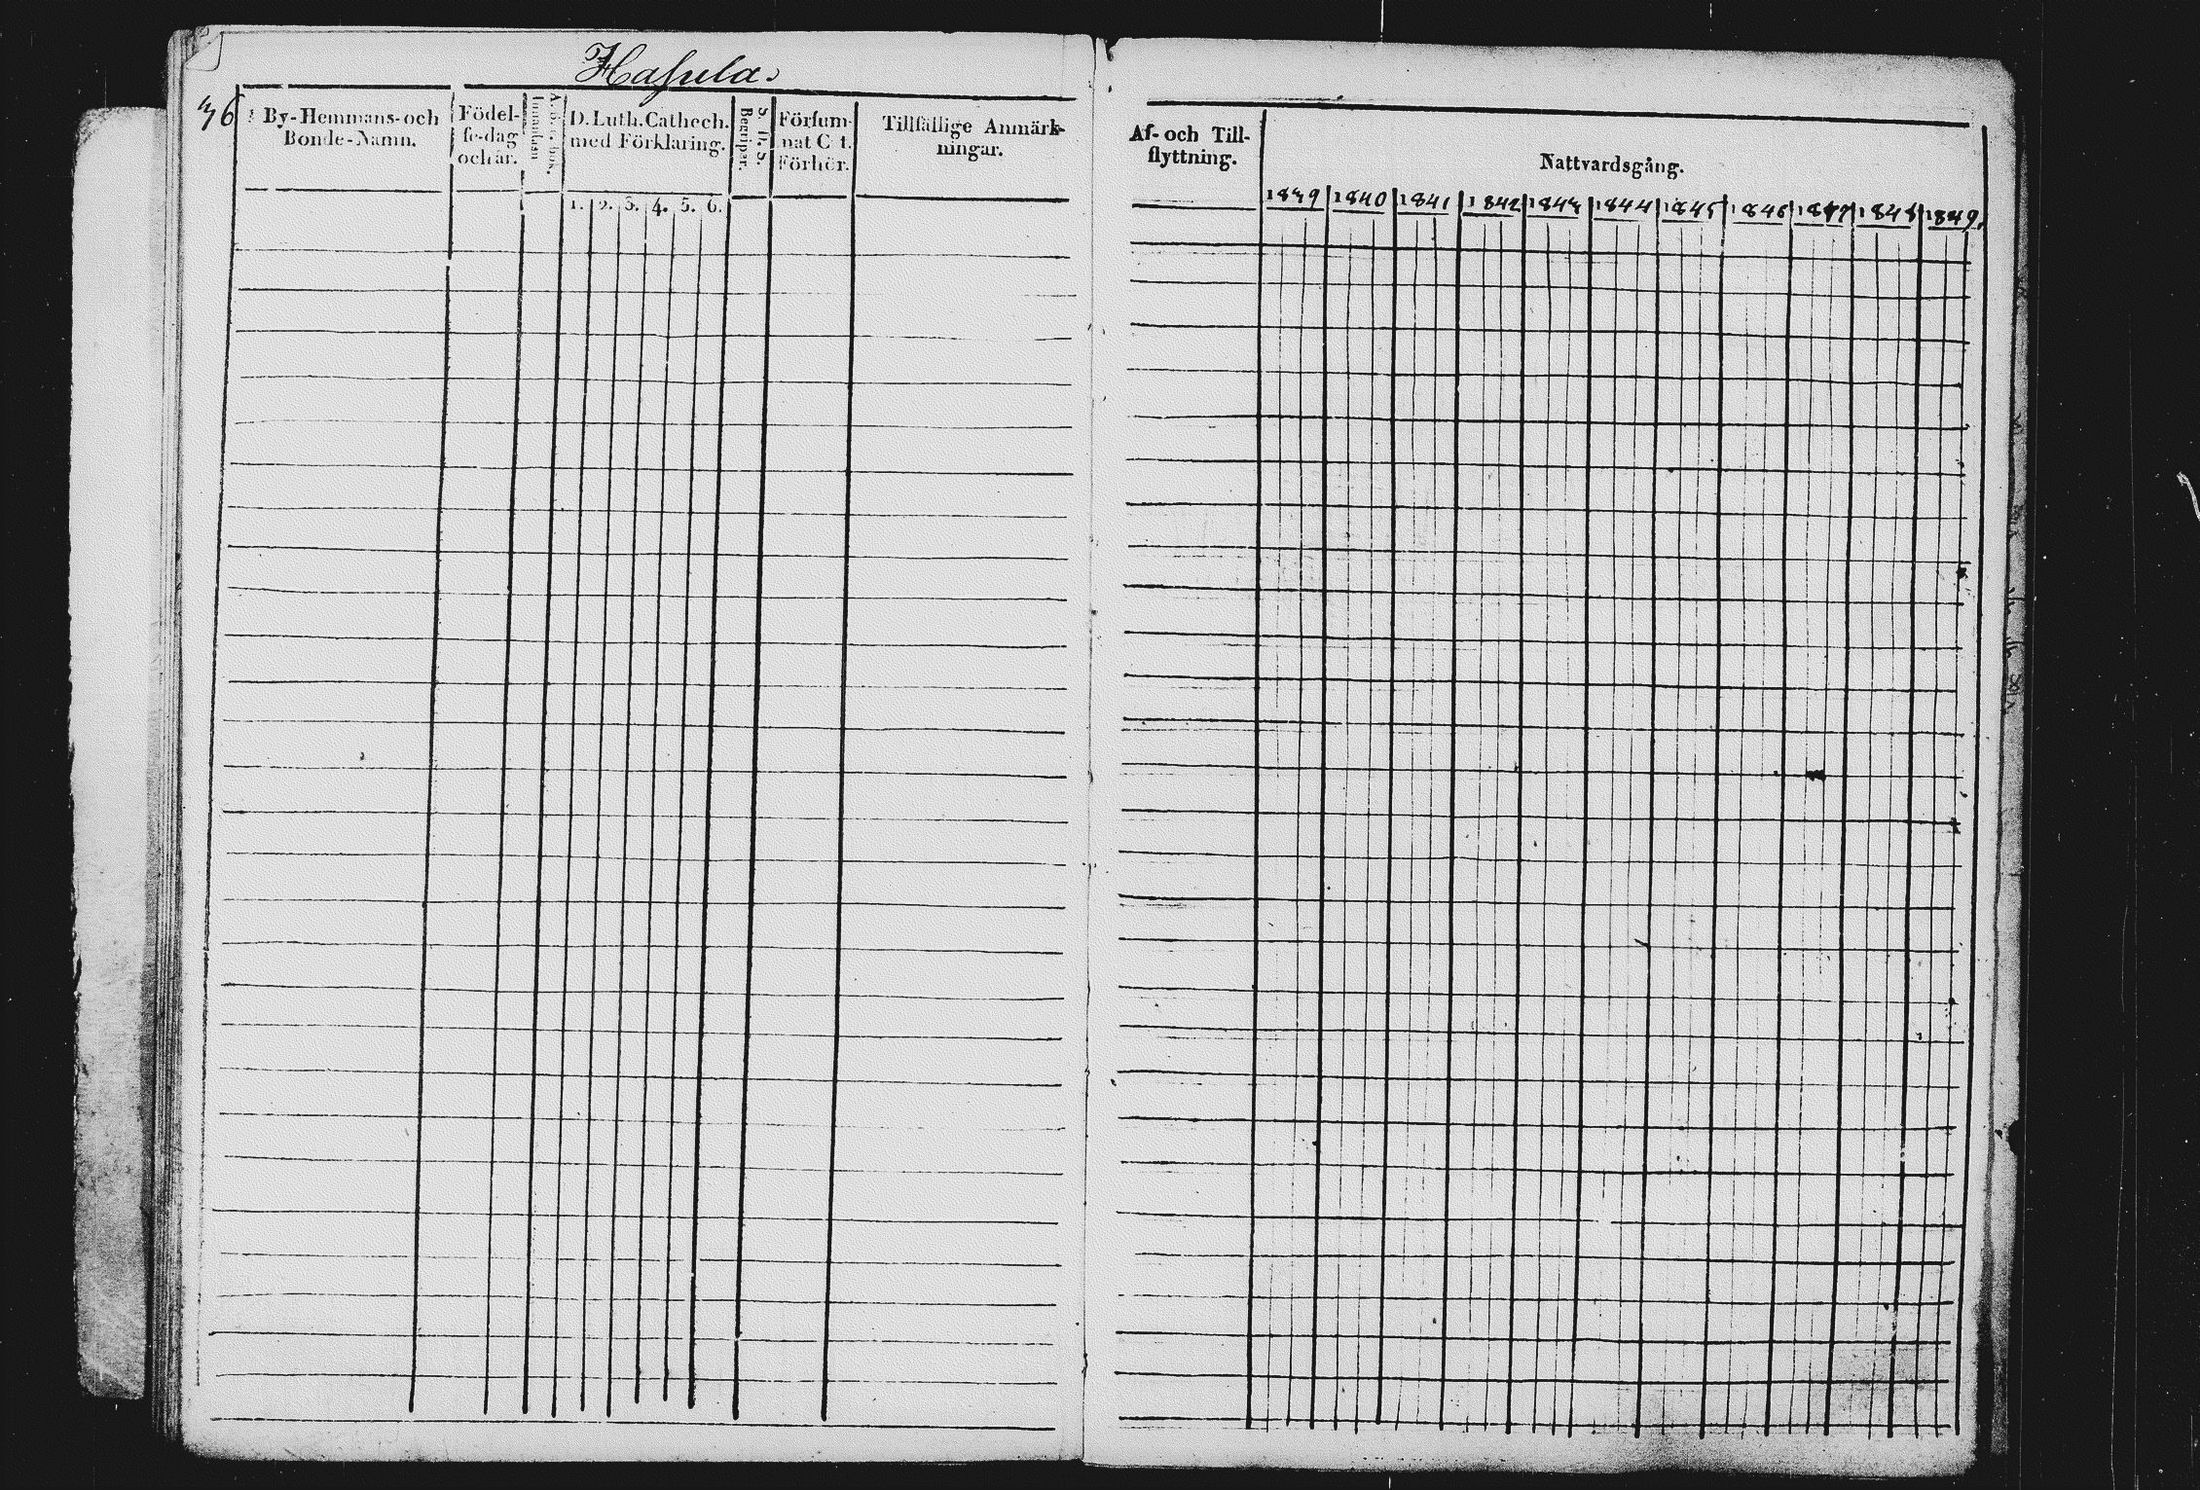 Hassula.
36
By-Hemmans- och
Bonde-Namn.
Födel-
se-dag
och år.
D. Luth. Cathech.
med Förklaring.
1. 2. 3. 4. 5. 6.
Begriper.
Försum-
nat C t.
Förhör.
Tillfällige Anmärk-
ningar.
Af- och Till-
flyttning.
Nattvardsgång.
1839 1840 1841 1842 1843 1844 1845 1846 1847 1848 1849.